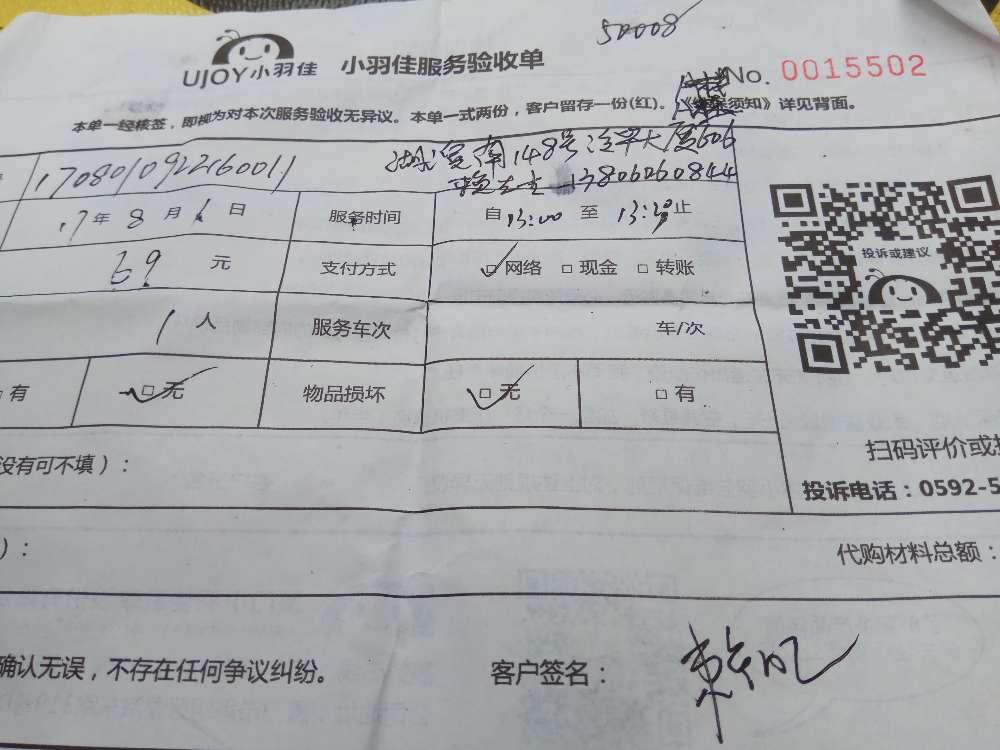 50008
UJOY小羽佳 小羽佳服务验收单
No. 0015502
本单一经核签，即视为对本次服务验收无异议。本单一式两份，客户留存一份(红)。须知》详见背面。
170801092216001 148号 大厦606
13806060844
17年 8 月 1 日 服务时间 自 13:00 至 13:30 止
69 元 支付方式 □网络 □现金 □转账
投诉或建议
1 人 服务车次 车/次
□有 □无 物品损坏 □无 □有
没有可不填）：
扫码评价或
投诉电话：0592-5
）：
代购材料总额：
确认无误，不存在任何争议纠纷。 客户签名：